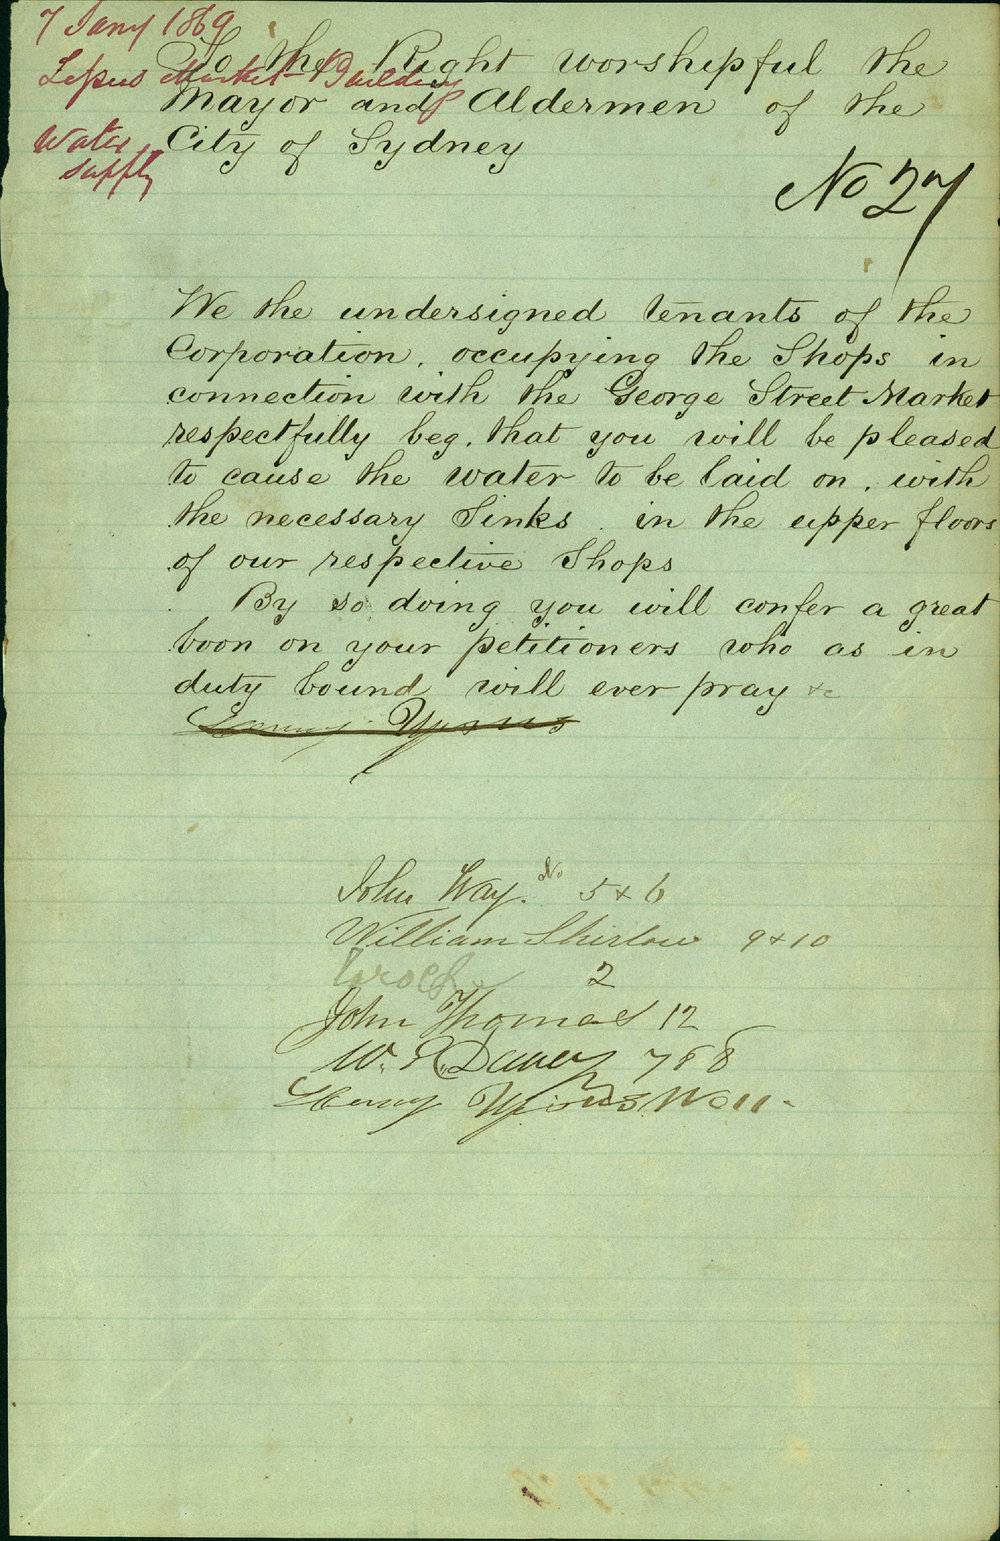 7 Jany 1869
Market Buildings
Water
supply
To the Right worshipful the
Mayor and Aldermen of the
City of Sydney
No 27
We the undersigned tenants of the
Corporation, occupying the Shops in
connection with the George Street Market
respectfully beg, that you will be pleased
to cause the water to be laid on, with
the necessary Sinks in the upper floors
of our respective Shops
By so doing you will confer a great
boon on your petitioners who as in
duty bound will ever pray &c
John Way. No 5 & 6
William Shirlow 9 & 10
2
John Thomas 12
W. 7 & 8
Henry No 11-